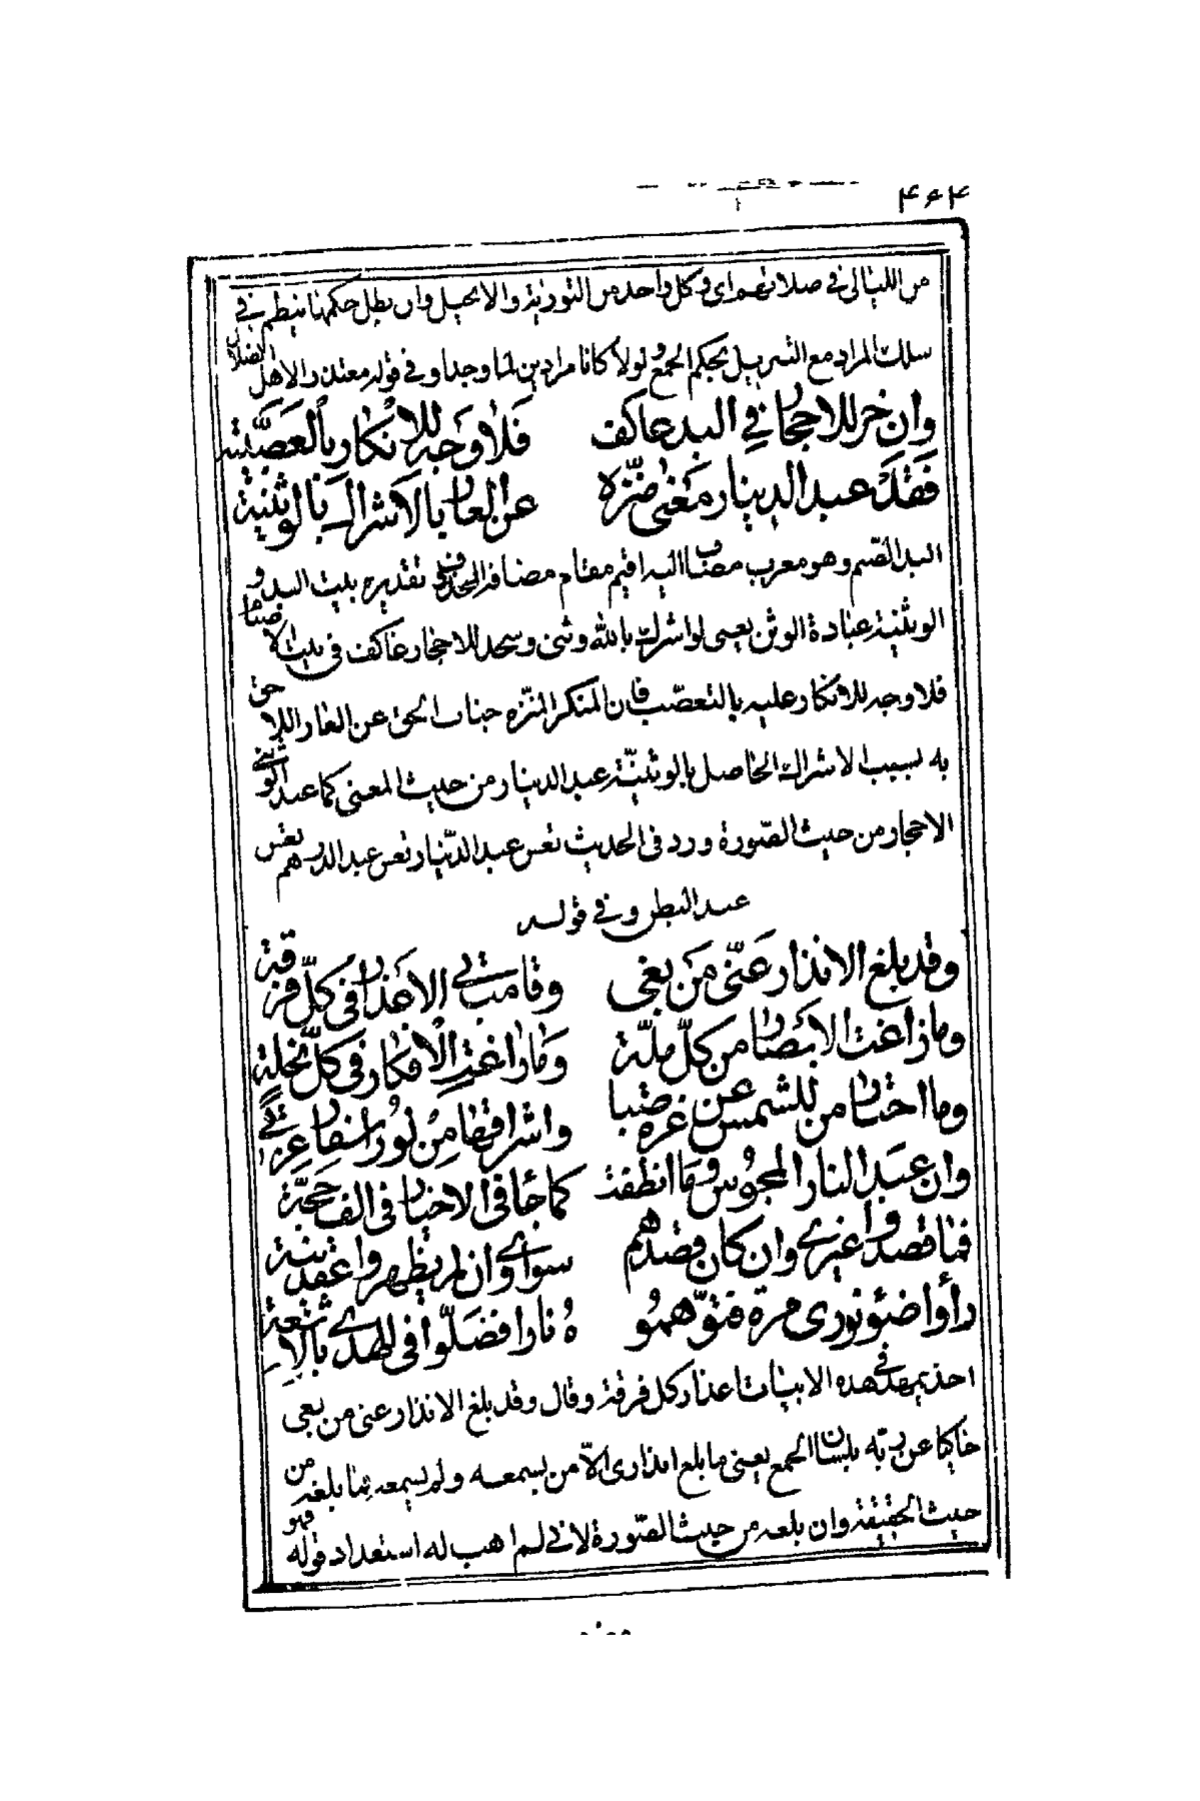 ۴۶۴
من الليالى فى صلاتهم اى فى كل واحد من التورية والانجيل وان بطل حكمهما ينتظم فى
سلك المراد مع التنزيل بحكم الجمع ولولا كانا مرادين لما وجدا وفى قوله معتذرا لاهل الضلال
وان خر للاحجار في البد عاكف فلا وجه للانكار بالعصبية
فقد عبد الدينار معنى منزه عن العار بالاشراك بالوثنية
البد الصنم وهو معرب مضاف اليه اقيم مقام مضافه المحذوف تقديره بيت البد و
الوثنية عبادة الوثن يعنى لو اشرك بالله وثنى وسجد للاحجار عاكف فى بيت الاصنام
فلا وجه للانكار عليه بالتعصب فان المنكر المنزه جناب الحق عن العار اللاحق
به بسبب الاشراك الحاصل بالوثنية عبد الدينار من حيث المعنى كما عبد الوثنى
الاحجار من حيث الصورة ورد فى الحديث تعس عبد الدينار تعس عبد الدرهم تعس
عبد البطن وفى قوله
وقد بلغ الانذار عنى من بغى وقامت بى الاعذار فى كل فرقة
وما زاغت الابصار من كل ملة وما زاغت الافكار فى كل نحلة
وما احتار من للشمس عن غرة صبا واشراقها من نور اسفار غرتى
وان عبد النار المجوس وما انطفت كما جا فى الاخبار فى الف حجة
فما قصدوا غيرى وان كان قصدهم سواى وان لم يظهروا عقد نية
رأوا ضوء نورى مرة فتوهمو ه نارا فضلوا فى الهدى بالاشعة
اخذ يمهد فى هذه الابيات اعذار كل فرقة وقال وقد بلغ الانذار عنى من بغى
حاكيا عن ربه بلسان الجمع يعنى ما بلغ انذارى الا من يسمعه ولم يسمعه فما بلغه من
حيث الحقيقة وان بلغه من حيث الصورة لانى لم اهب له استعداد قوله فهو